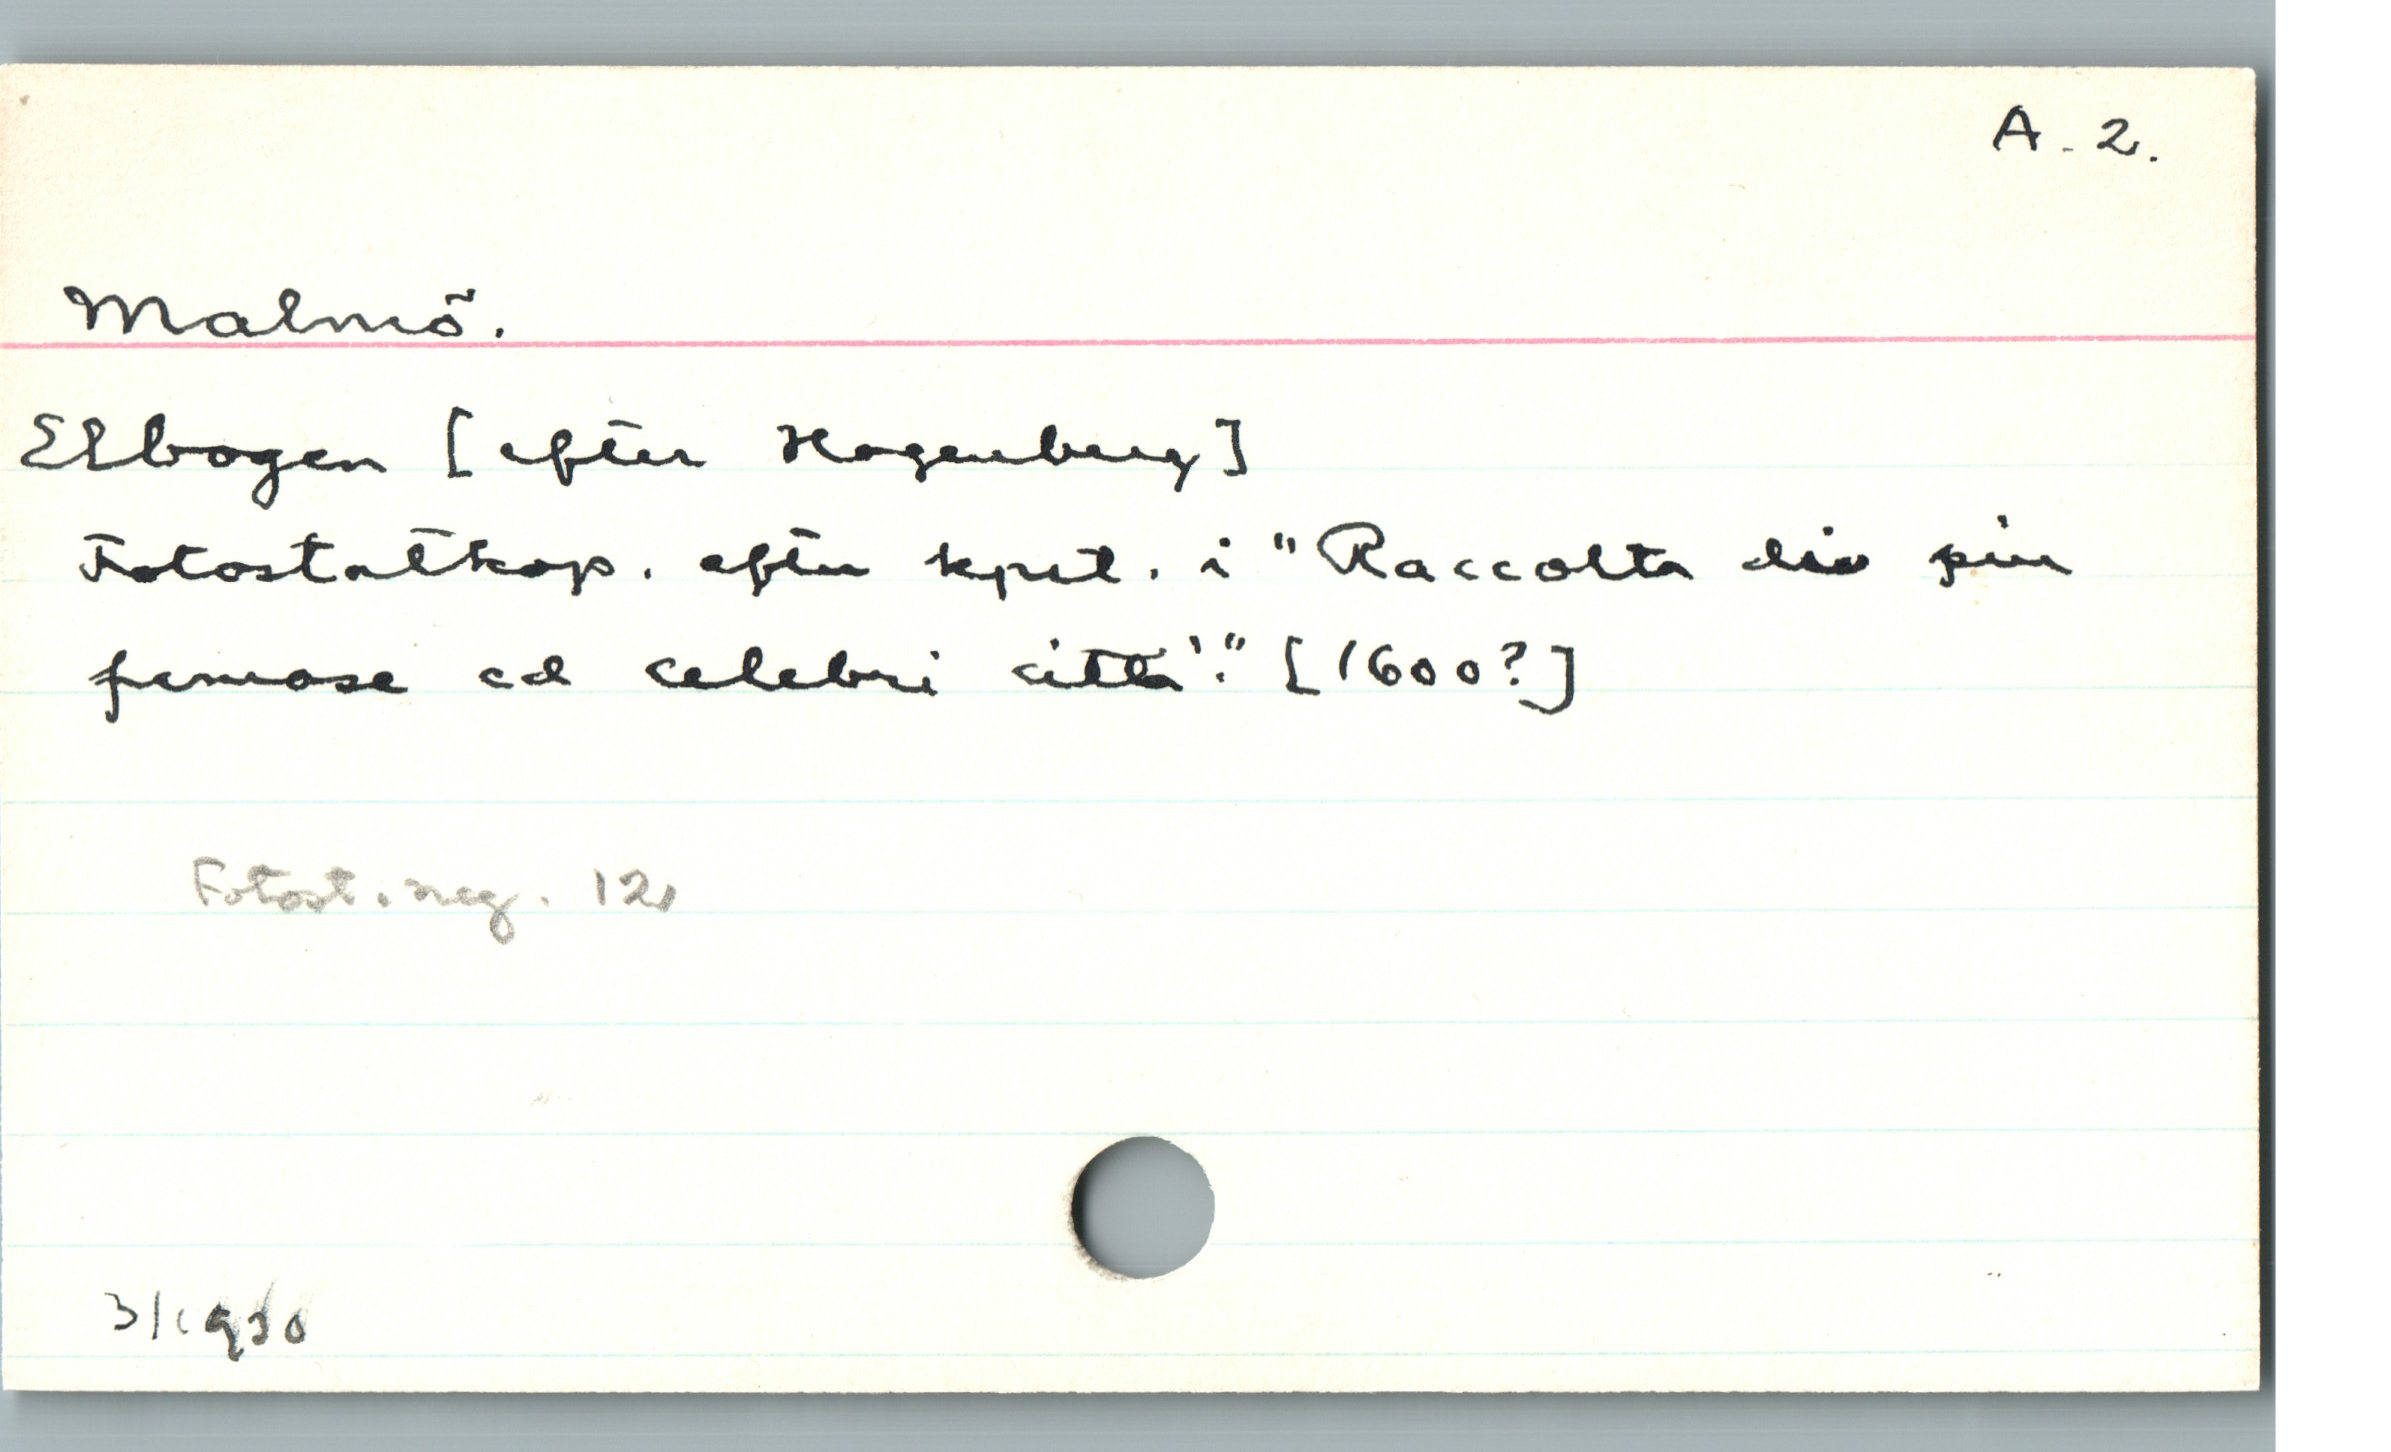 A. 2.
Malmö.
Elbogen [efter Hogenberg]
Fotostatkop. efter kpst. i "Raccolta di piu
famose ed celebri città". [1600?]
Fotost. neg. 12